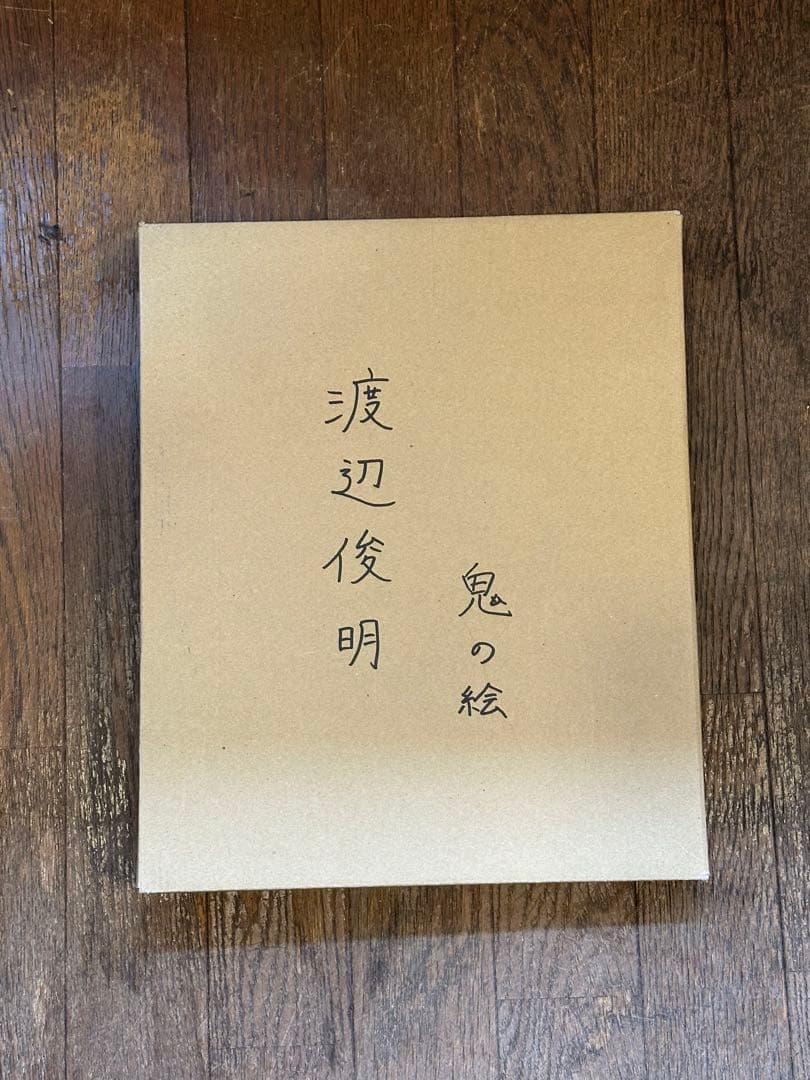 鬼の絵
渡辺俊明